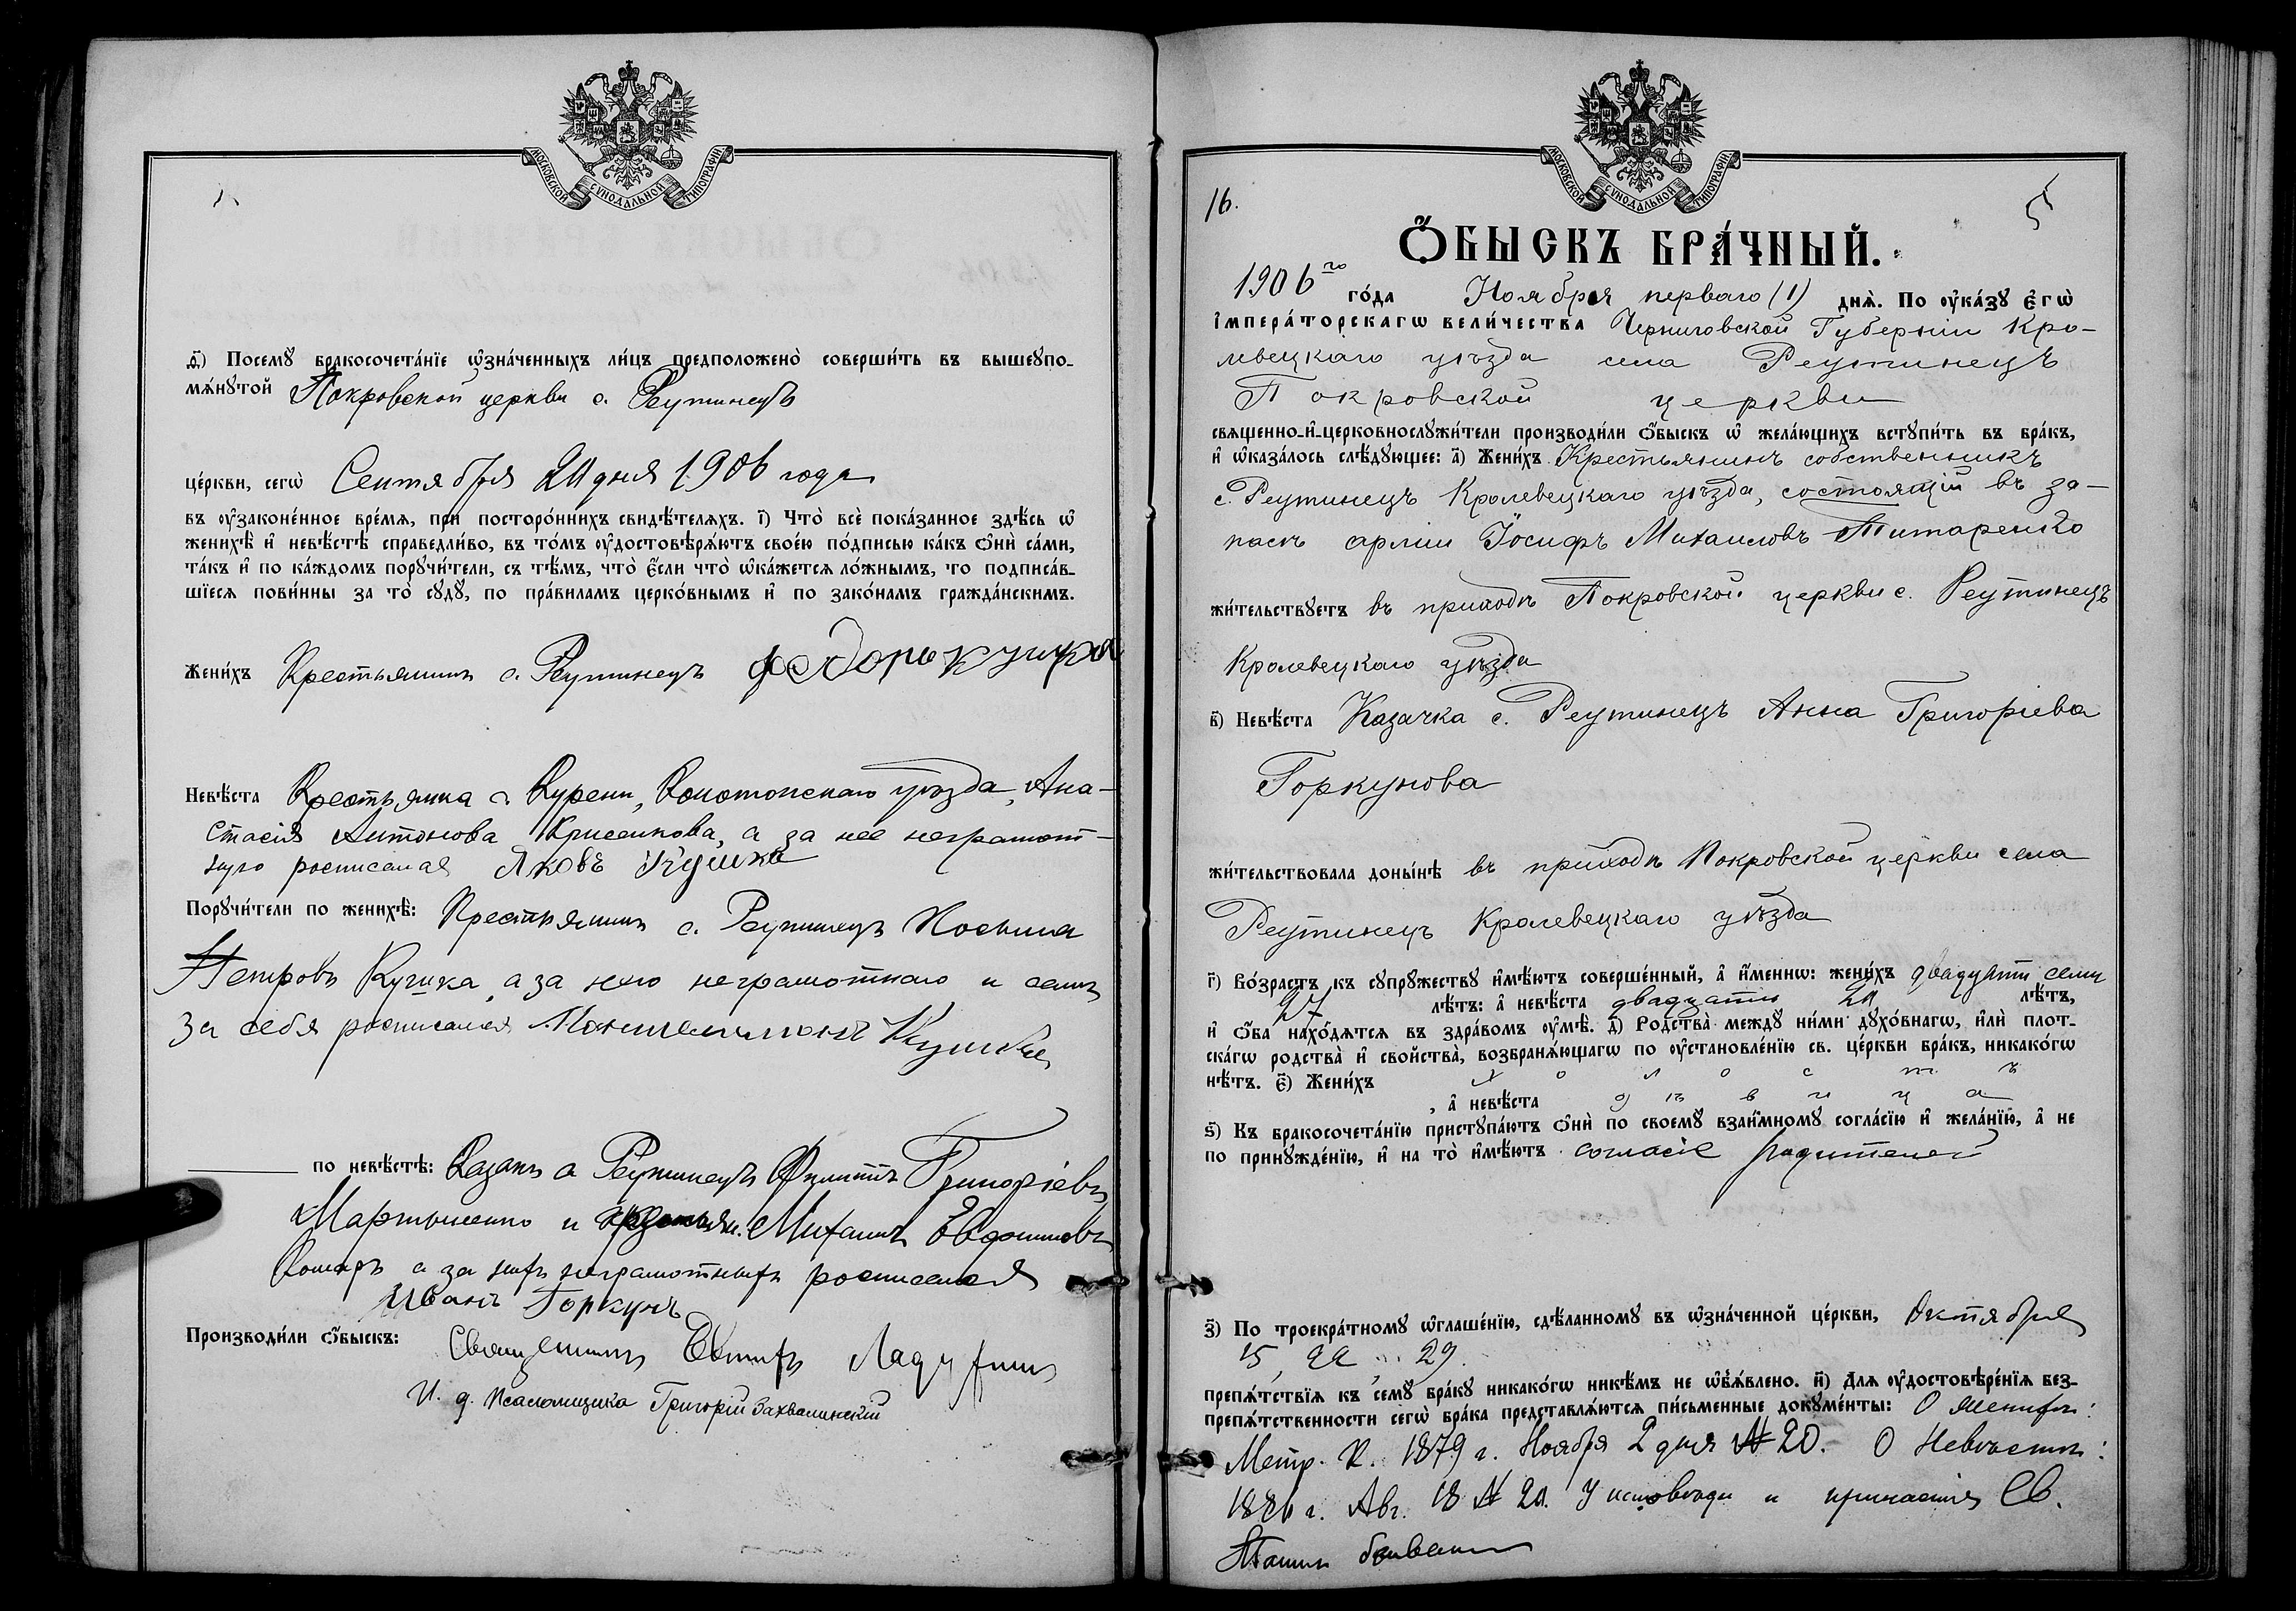 МОСКОВСКОЙ СѴНОДАЛЬНОЙ ТИПОГРАФІИ
д҃) Посемꙋ бракосочета́нїе ѡ҆зна́ченныхъ ли́цъ предположено̀ соверши́ть въ вышеꙋпо-
мѧ́нꙋтой Покровской церкви с. Реутинецъ
це́ркви, сегѡ̀ Сентября 20 дня 1906 года
въ оу҆законе́нное вре́мѧ, при посторо́ннихъ свидѣ́телѧхъ. і҃) Что̀ всѐ пока́занное здѣ́сь ѡ҆
женихѣ̀ и҆ невѣ́стѣ справедли́во, въ то́мъ оу҆достовѣрѧ́ютъ свое́ю по́дписью ка́къ ѻ҆нѝ са́ми,
та́къ и҆ по ка́ждомъ порꙋчи́тели, съ тѣ́мъ, что̀ є҆́сли что̀ ѡ҆ка́жетсѧ ло́жнымъ, то подписа́в-
шїесѧ пови́нны за то̀ сꙋдꙋ̀, по пра́виламъ церко́внымъ и҆ по зако́намъ гражда́нскимъ.
Жени́хъ Крестьянинъ с. Реутинецъ Федоръ Кушка
Невѣ́ста Крестьянка с. Курени, Конотопскаго уѣзда, Ана-
стасія Антонова, а за нее неграмот-
ную росписался Яковъ Кушка
Порꙋчи́тели по женихѣ̀: Крестьянинъ с. Реутинецъ Косьма
Петровъ Кушка, а за него неграмотнаго и самъ
за себя росписался Пантелимонъ Кушка
по невѣ́стѣ: Казакъ с. Реутинецъ Филиппъ Григоріевъ
Мартыненко и Михаилъ Евдокимовъ
а за нихъ неграмотныхъ росписался
Иванъ Горкунъ
Производи́ли ѻ҆́быскъ: Священникъ Евтихъ
И. д. Псаломщика Григорій Захвалинскій
МОСКОВСКОЙ СѴНОДАЛЬНОЙ ТИПОГРАФІИ
16.
Ѻ҆́БЫСКЪ БРА́ЧНЫЙ.
1906го го́да Ноября перваго (1) днѧ̀. По оу҆ка́зꙋ є҆гѡ̀
і҆мпера́торскагѡ вели́чества Черниговской Губерніи Кро-
левецкаго уѣзда села Реутинецъ
Покровской церкви
свѧщенно-и҆-церковнослꙋжи́тели производи́ли ѻ҆́быскъ ѡ҆ жела́ющихъ встꙋпи́ть въ бра́къ,
и҆ ѡ҆каза́лось слѣ́дꙋющее: а҃) Жени́хъ Крестьянинъ собственникъ
с. Реутинецъ Кролевецкаго уѣзда, состоящій въ за-
пасѣ арміи Іосифъ Михаиловъ Титаренко
жи́тельствꙋетъ въ приходѣ Покровской церкви с. Реутинецъ
Кролевецкаго уѣзда
в҃) Невѣ́ста Казачка с. Реутинецъ Анна Григоріева
Горкунова
жи́тельствовала доны́нѣ въ приходѣ Покровской церкви села
Реутинецъ Кролевецкаго уѣзда
г҃) Во́зрастъ къ сꙋпрꙋ́жествꙋ и҆мѣ́ютъ соверше́нный, а҆ и҆́менно: жени́хъ двадцати семи
27 лѣ́тъ: а҆ невѣ́ста двадцати 20 лѣ́тъ,
и҆ ѻ҆́ба нахо́дѧтсѧ въ здра́вомъ оу҆мѣ̀. д҃) Родства̀ междꙋ ни́ми дꙋхо́внагѡ, и҆лѝ плот-
ска́гѡ родства̀ и҆ сво́йства̀, возбранѧ́ющагѡ по оу҆становле́нїю св. це́ркви бра́къ, никако́гѡ
нѣ́тъ. є҃) Жени́хъ холостъ
, а҆ невѣ́ста дѣвица
ѕ҃) Къ бракосочета́нїю пристꙋпа́ютъ ѻ҆нѝ по своемꙋ̀ взаи́мномꙋ согла́сїю и҆ жела́нїю, а҆ не
по принꙋжде́нїю, и҆ на то̀ и҆мѣ́ютъ согласіе родителей
з҃) По троекра́тномꙋ ѡ҆глаше́нїю, сдѣ́ланномꙋ въ ѡ҆зна́ченной це́ркви, Октября
15, 22, 29.
препѧ́тствїѧ къ семꙋ̀ бра́кꙋ никако́гѡ никѣ́мъ не ѡ҆бъѧ́влено. и҃) Длѧ оу҆достовѣре́нїѧ без-
препѧ́тственности сегѡ̀ бра́ка представлѧ́ютсѧ пи́сьменные докꙋме́нты: О женихѣ:
Метр. К. 1879 г. Ноября 2 дня № 20. О невѣстѣ:
1886 г. Авг. 18 № 20. У исповѣди и причастія Св.
Таинъ бывали